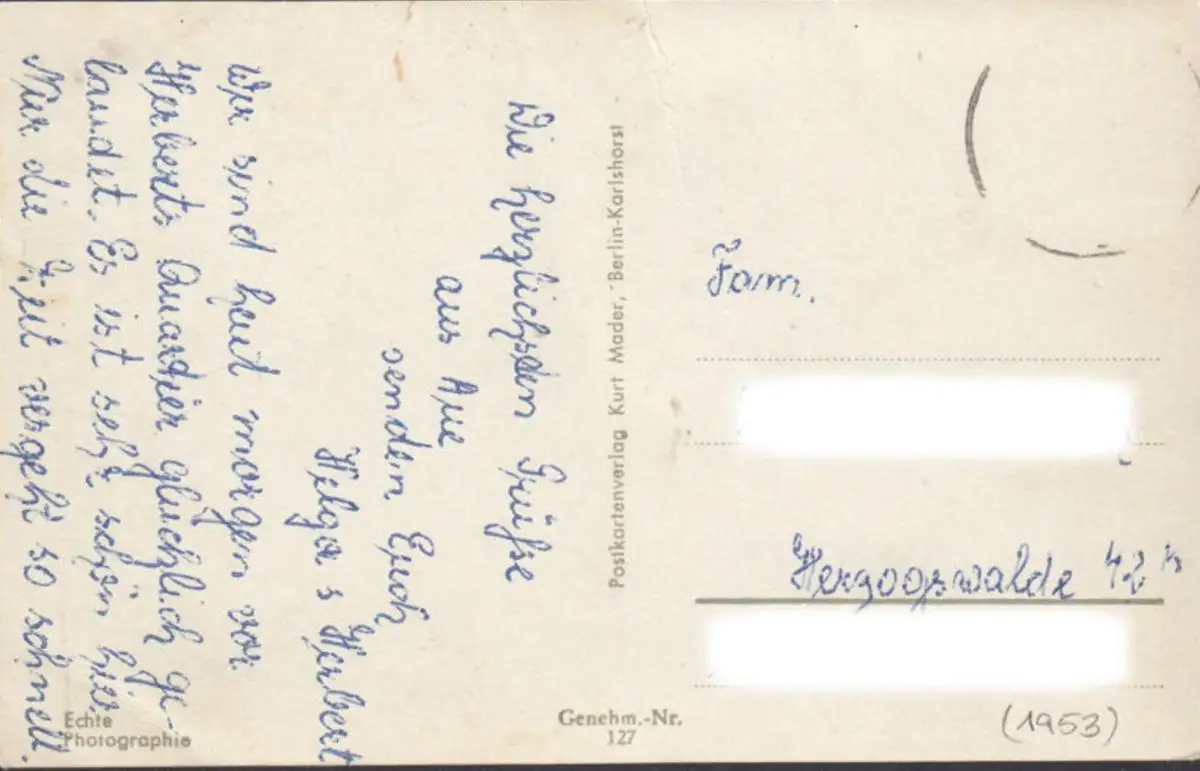 Die herzlichsden Grüße
aus Aue
senden Euch
Helga s Herbert
Wir sind heut morgen vor
Herberts Quartier glücklich ge-
landet. Es ist sehr schön hier.
Nur die Zeit vergeht so schnell.
Echte
Photographie
Postkartenverlag Kurt Mader, Berlin-Karlshorst
Genehm.-Nr.
127
Fam.
Herzogswalde 42
(1953)